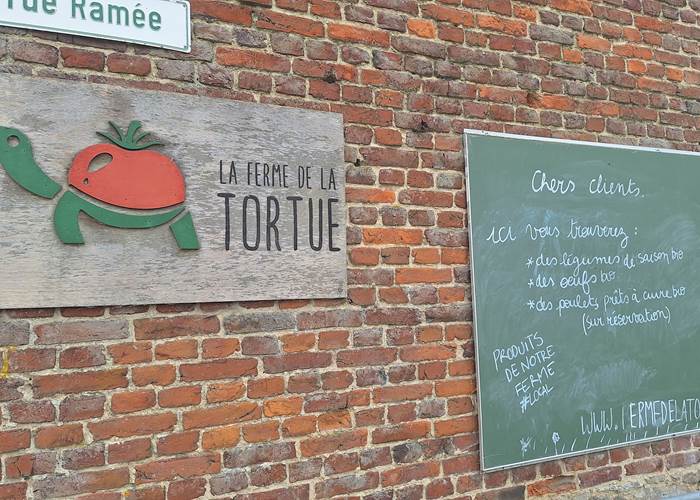 rue Ramée
LA FERME DE LA
TORTUE
Chers clients.
ici vous trouverez :
*des légumes de saison bio
*des oeufs bio
*des poulets prêts à cuire bio
(sur réservation)
PRODUITS
DE NOTRE
FERME
#LOCAL